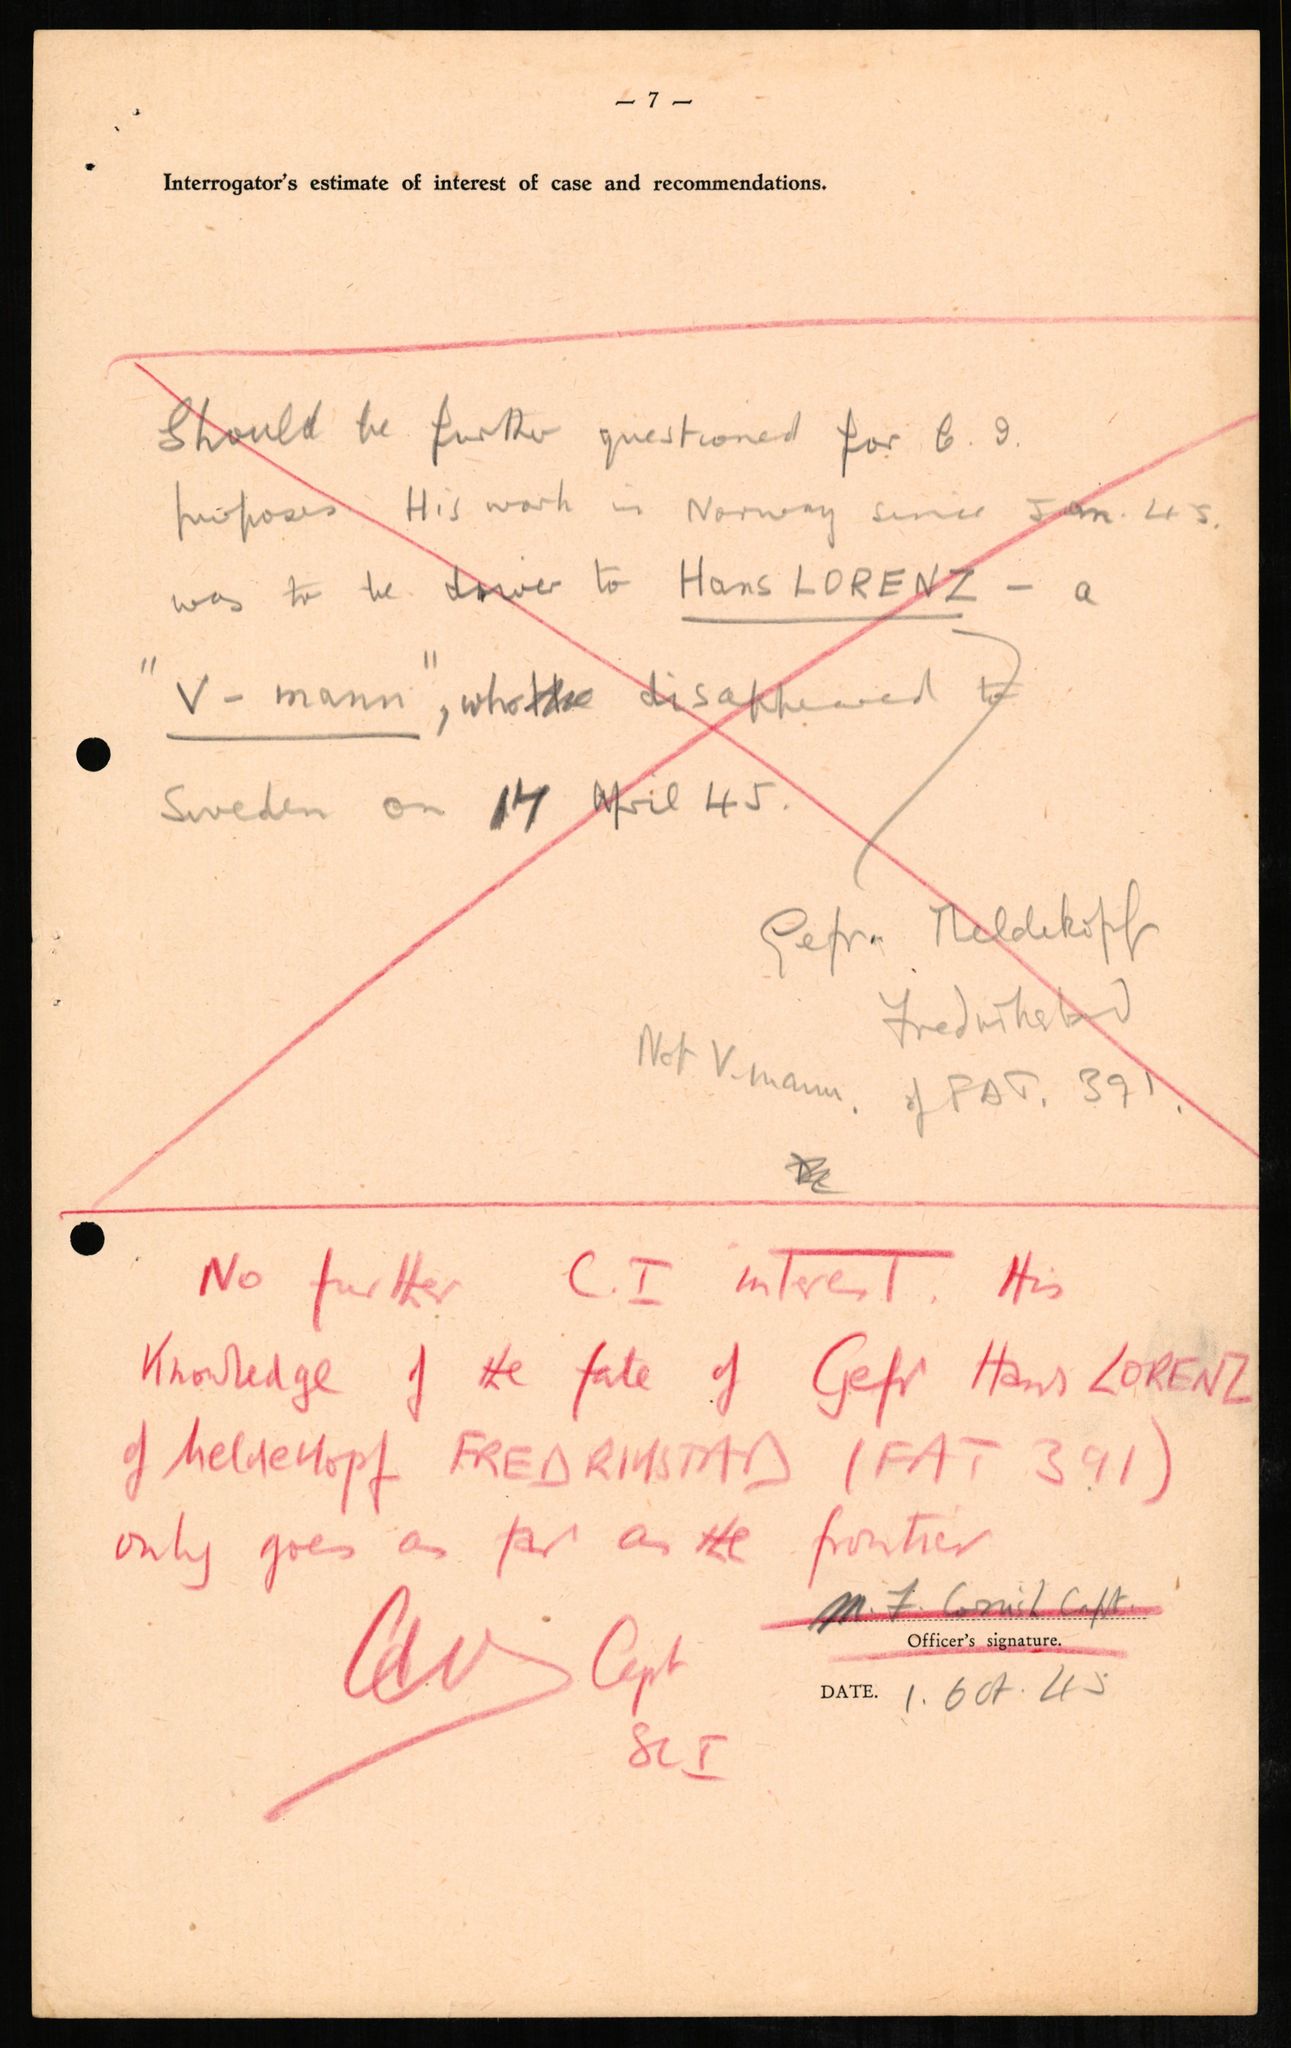 — 7 —
Interrogator's estimate of interest of case and recommendations.
Should be further questioned for C.I.
purposes His work in Norway since Jan. 45.
was to be driver to Hans LORENZ - a
"V-mann", who disappeared to
Sweden on 17 April 45.
Gefr. Meldekopf
Fredrikstad
Not V-mann. of FAT. 391.
No further C.I interest. His
Knowledge of the fate of Gefr Hans LORENZ
of Meldekopf FREDRIKSTAD (FAT 391)
only goes as far as the frontier
M. F. Cornish Capt.
Officer's signature.
Capt
DATE. 1. Oct. 45